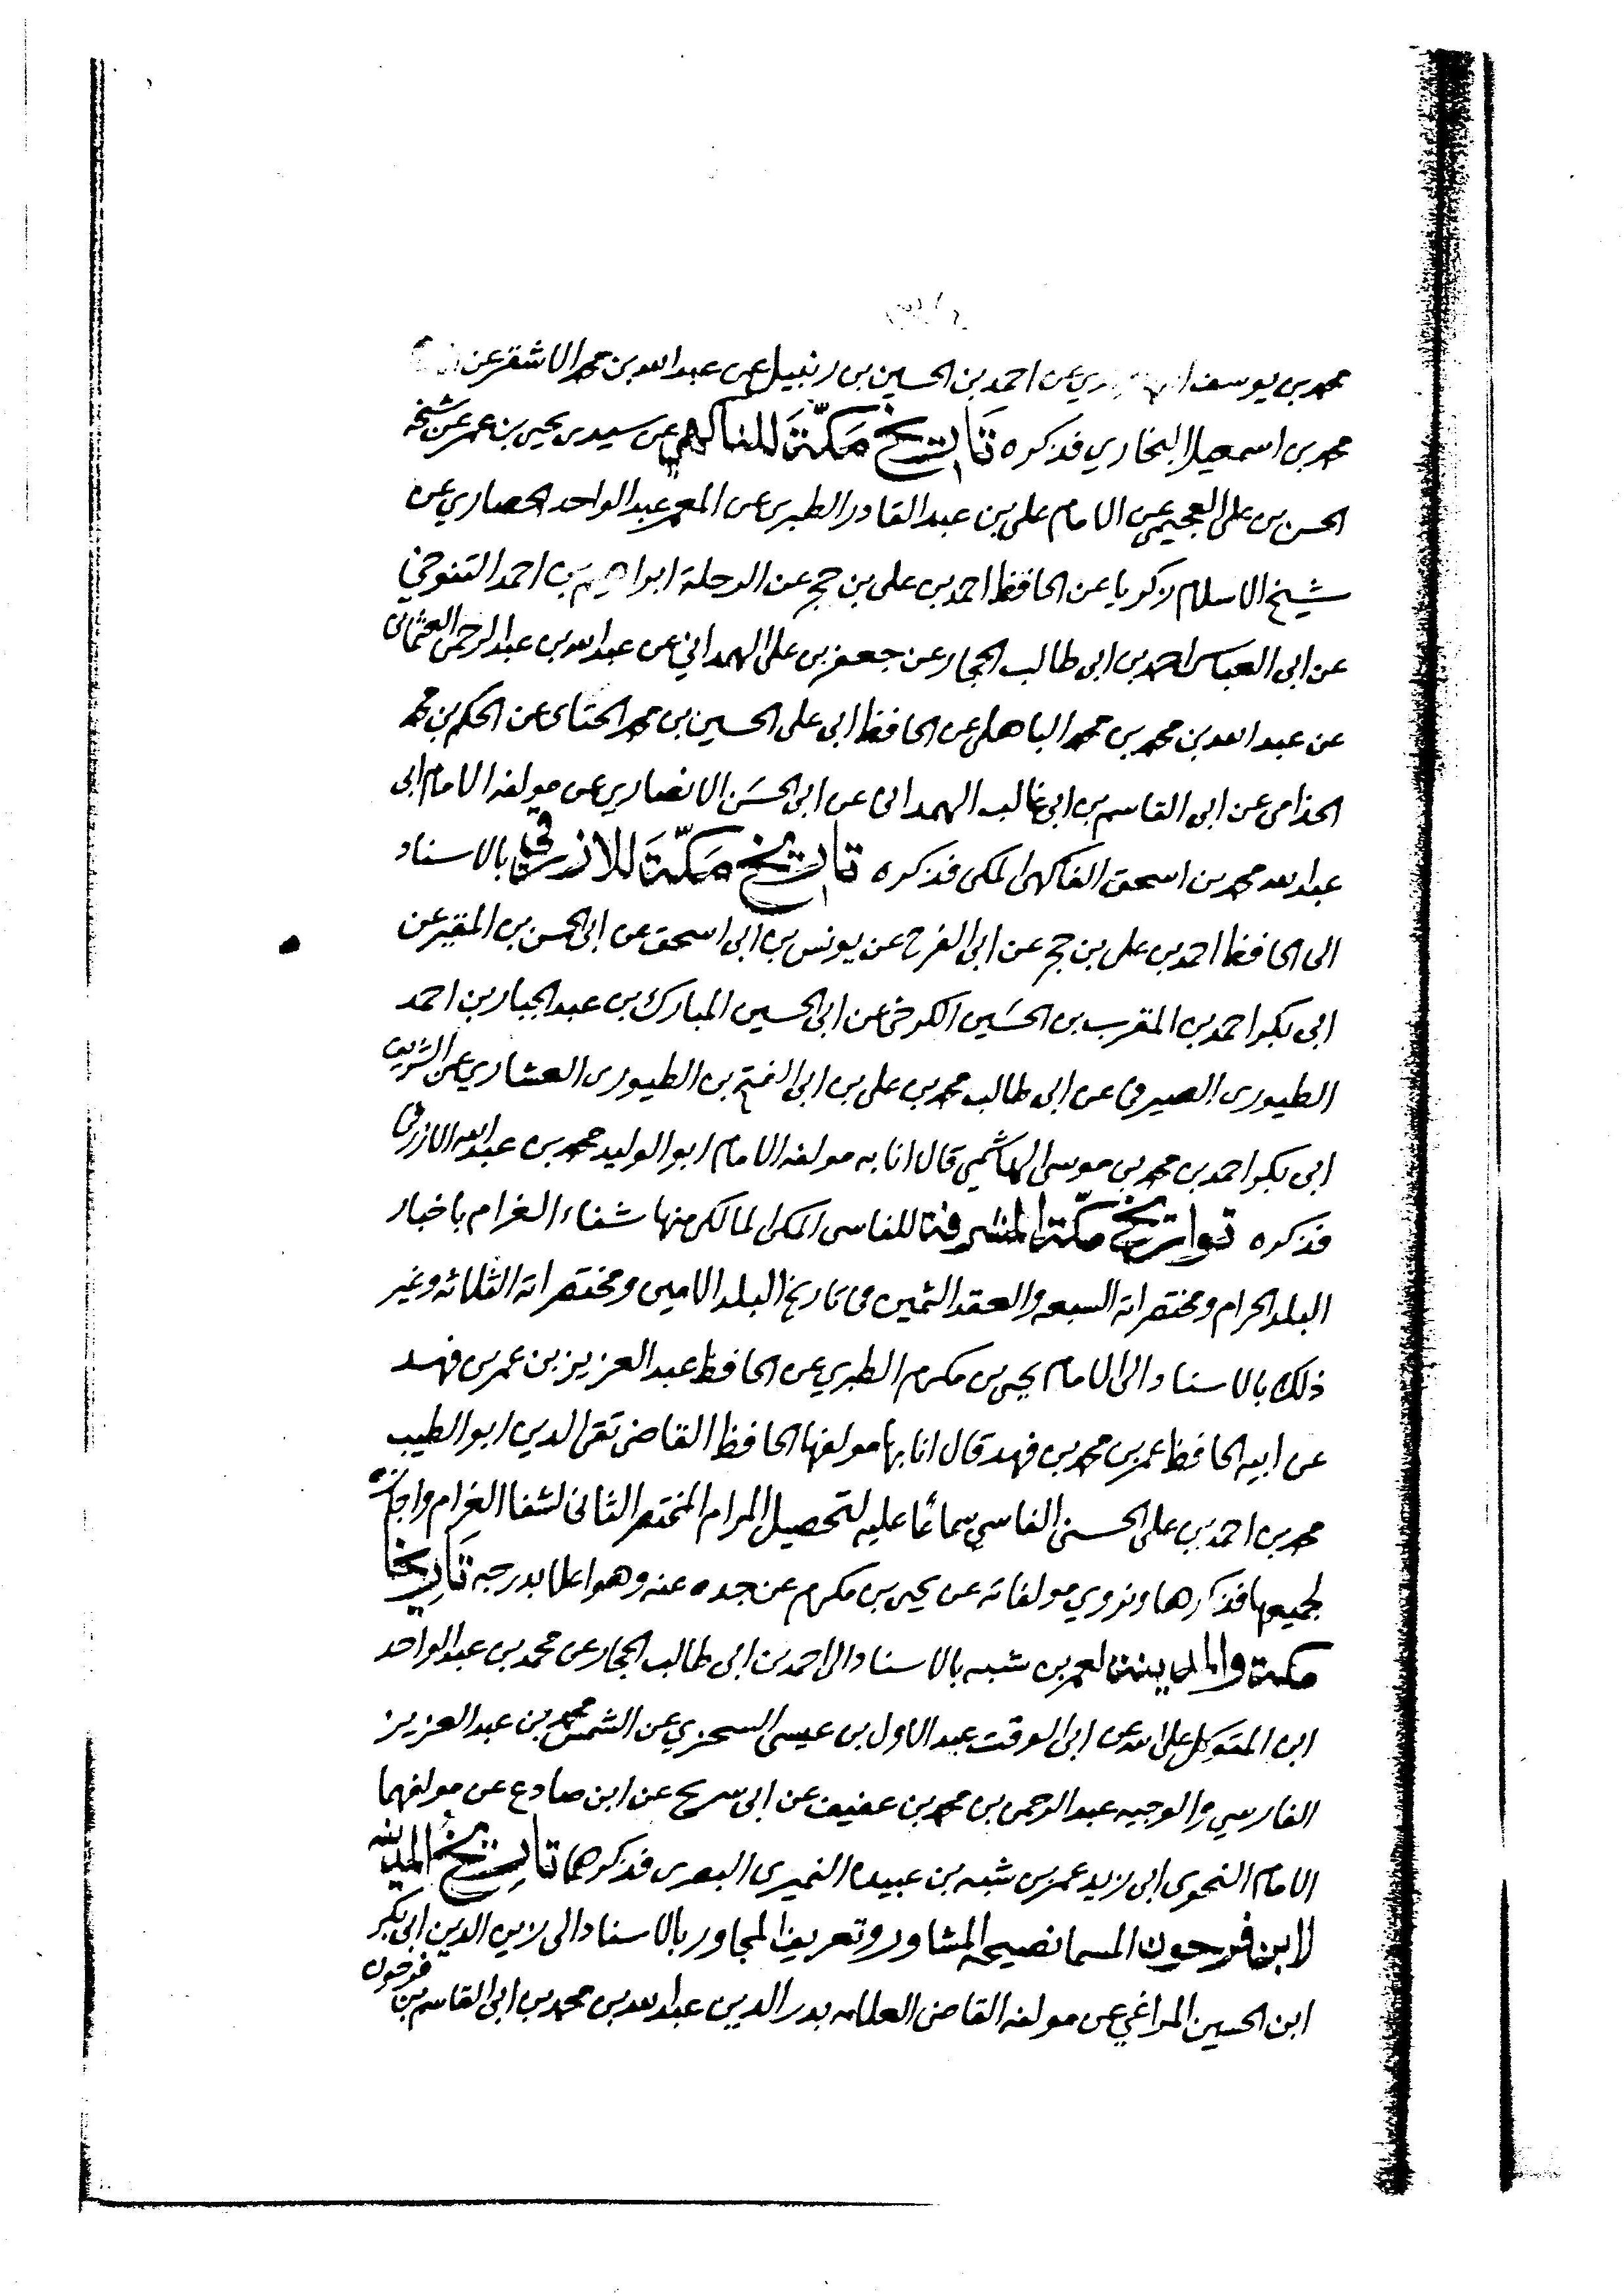 محمد بن يوسف عن احمد بن الحسين بن زنبيل عن عبد الله بن محمد الاشقر عن
محمد بن اسمعيل البخاري فذكره تاريخ مكة للفاكهي عن سيدي يحيى بن عمر عن شيخه
الحسن بن علي العجيمي عن الامام علي بن عبد القادر الطبري عن المعمر عبد الواحد الحصاري عن
شيخ الاسلام زكريا عن الحافظ احمد بن علي بن حجر عن الرحلة ابراهيم بن احمد التنوخي
عن ابي العباس احمد بن ابي طالب الحجار عن جعفر بن علي الهمداني عن عبد الله بن عبد الرحمن العثماني
عن عبد الله بن محمد بن محمد الباهلي عن الحافظ ابي علي الحسين بن محمد الجياني عن الحكم بن محمد
الجذامي عن ابي القاسم بن ابي غالب الهمداني عن ابي الحسن الانصاري عن مولفه الامام ابي
عبد الله محمد بن اسحق الفاكهي المكي فذكره تاريخ مكة للازرقي بالاسناد
الى الحافظ احمد بن علي بن حجر عن ابي الفرج عن يونس بن ابي اسحق عن ابي الحسن بن المقير عن
ابي بكر احمد بن المقرب بن الحسين الكرخي عن ابي الحسين المبارك بن عبد الجبار بن احمد
الطيوري الصيرفي عن ابي طالب محمد بن علي بن ابي الفتح بن الطيوري العشاري عن الشريف
ابي بكر احمد بن محمد بن موسى الهاشمي قال انا به مولفه الامام ابو الوليد محمد بن عبد الله الازرقي
فذكره تواريخ مكة المشرفة للفاسي المكي المالكي منها شفاء الغرام باخبار
البلد الحرام ومختصراته السبعه والعقد الثمين في تاريخ البلد الامين ومختصراته الثلاثه وغير
ذلك بالاسناد الى الامام يحيى بن مكرم الطبري عن الحافظ عبد العزيز بن عمر بن فهد
عن ابيه الحافظ عمر بن محمد بن فهد قال انا بها مولفها الحافظ القاضي تقي الدين ابو الطيب
محمد بن احمد بن علي الحسني الفاسي سماعا عليه لتحصيل المرام المختصر الثاني لشفا الغرام واجازه
لجميعها فذكرها ونروي مولفاته عن يحيى بن مكرم عن جده عنه وهو اعلا بدرجه تاريخا
مكة والمدينة لعمر بن شبه بالاسناد الى احمد بن ابي طالب الحجار عن محمد بن عبد الواحد
ابن المتوكل على الله عن ابي الوقت عبد الاول بن عيسى السجزي عن الشمس محمد بن عبد العزيز
الفارسي والوجيه عبد الرحمن بن محمد بن عفيف عن ابي سريح عن ابن صاعد عن مولفهما
الامام النحوي ابي زيد عمر بن شبه بن عبيده النميري البصري فذكرهما تاريخ المدينه
لابن فرحون المسما نصيحه المشاور وتعريف المجاور بالاسناد الى زين الدين ابي بكر
ابن الحسين المراغي عن مولفه القاضي العلامه بدر الدين عبد الله بن محمد بن ابي القاسم بن فرحون